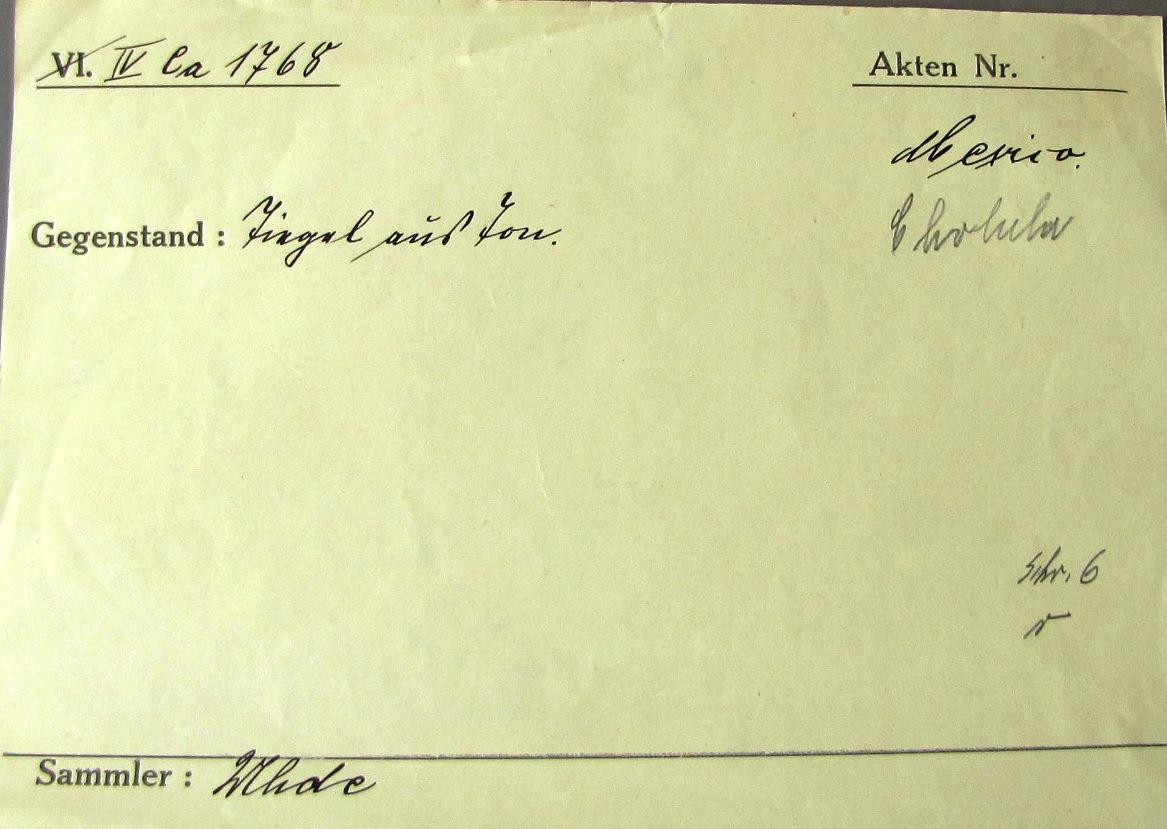 VI. IV Ca 1768
Akten Nr.
Mexico.
Cholula
Gegenstand : Tiegel aus Ton.
Schr. 6
r
Sammler : Uhde